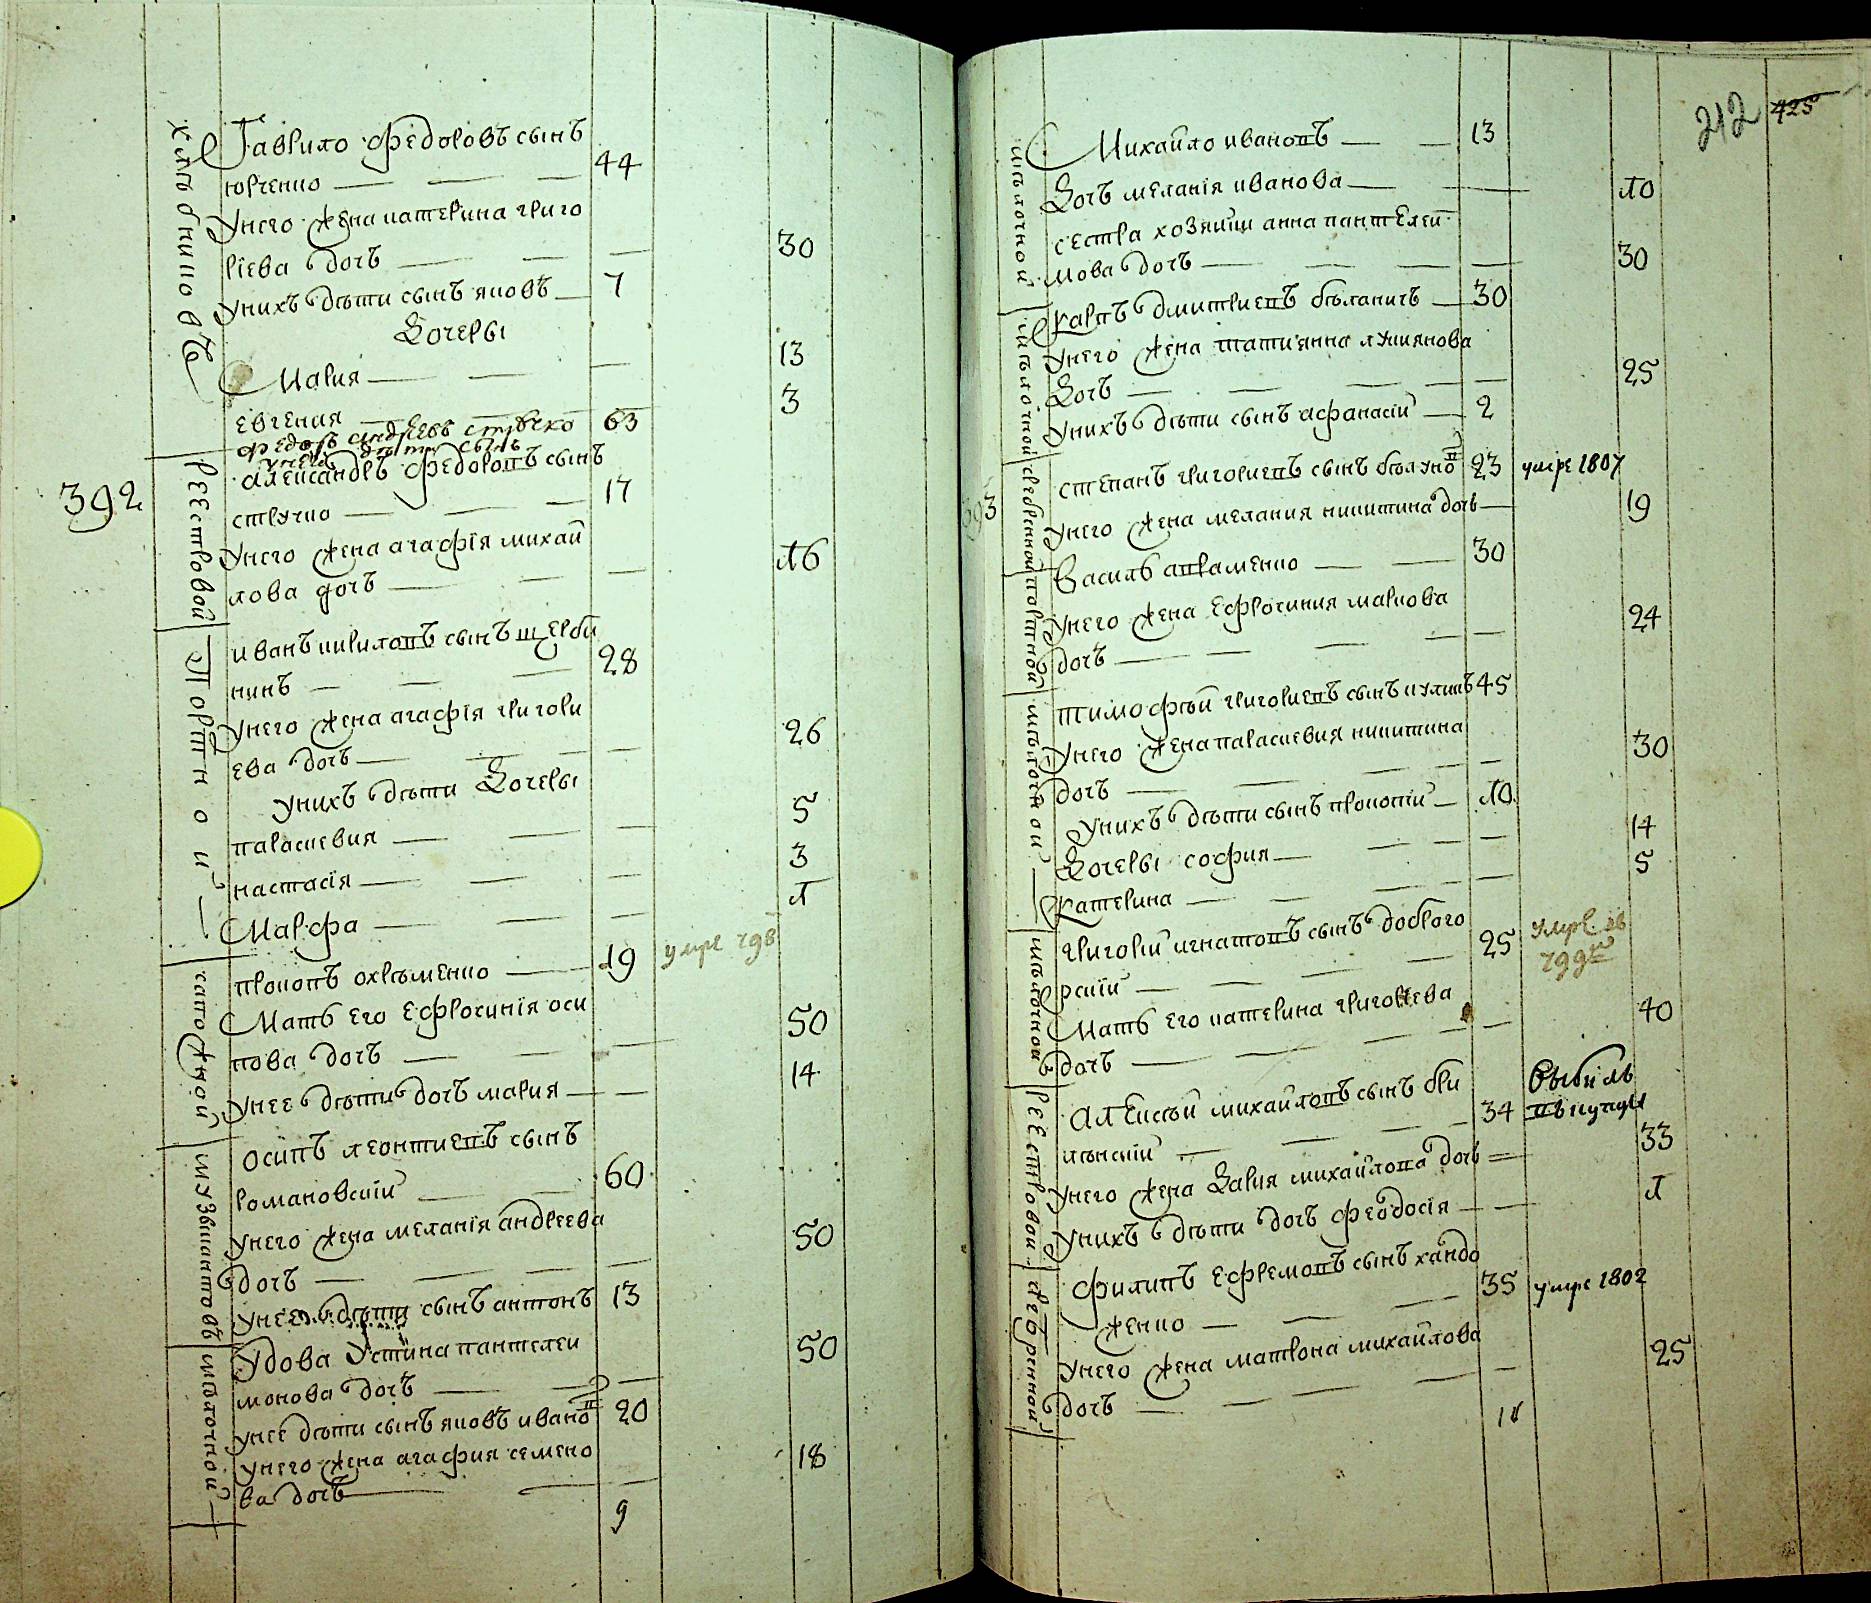 хлѣбниковъ
Гаврило федоровъ сынъ
юрченко 44
унего жена катерина григо
риева дочъ 30
унихъ дѣти сынъ яковъ 7
Дочеры
Мария 13
евгения 3
федоръ андреевъ 63
унего дѣти сынъ
392
реестровой
александръ федоровъ сынъ
стручко 17
унего жена агафiя михаи
лова дочъ 16
Портной
иванъ кириловъ сынъ щерби
нинъ 28
унего жена агафiя григори
ева дочъ 26
унихъ дѣти Дочеры
параскевия 5
настасiя 3
Марфа 1
сапожной
прокопъ охрѣменко 19 умре 798
Мать его ефросинiя оси
пова дочъ 50
унее дѣти дочъ мария 14
музыкантовъ
осипъ леонтиевъ сынъ
романовский 60
унего жена меланiя андреева 50
дочъ
унее дѣти сынъ антонъ 13
шкѣлочной
удова устина пантелеи
монова дочъ 50
унее дѣти сынъ яковъ ивановъ 20
унего жена агафия семено
ва дочъ 18
9
212 425
Михайло ивановъ 13
Дочъ меланiя иванова 10
сестра хозяйки анна пантелеи
мова дочъ 30
карпъ дмитриевъ бѣланичъ 30
унего жена татиянна лукиянова
Дочъ 25
унихъ дѣти сынъ афанасий 2
393
сребренной
степанъ григориевъ сынъ 23 умре 1807
унего жена мелания никитина дочь 19
портной
Василь авраменко 30
унего жена ефросиния маркова
дочъ 24
тимофѣй григориевъ сынъ куликъ 45
унего жена параскевия никитина
дочъ 30
унихъ дѣти сынъ прокопий 10
Дочеры софия 14
катерина 5
григорий игнатовъ сынъ доброго
рский 25 умре въ 799м
Мать его катерина григорева
дочъ 40
реестровой
Алексѣй михайловъ сынъ бри
лѣнский 34 Выбилъ
унего жена Дария михайлова дочь 33
унихъ дѣти дочъ феодосiя 1
сребренной
филипъ ефремовъ сынъ хандо
женко 35 умре 1802
унего жена матрона михайлова
дочъ 25